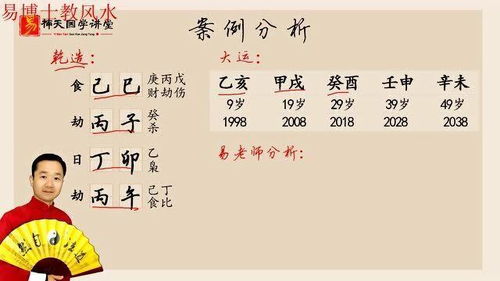 易博士教风水
易 师天国学讲堂
Yi Shi Tian Guo Xue Jiang Tang
案例分析
乾造：
食 己 巳 庚丙戊
财劫伤
劫 丙 子 癸
杀
日 丁 卯 乙
枭
劫 丙 午 己丁
食比
大运：
乙亥 甲戌 癸酉 壬申 辛未
9岁 19岁 29岁 39岁 49岁
1998 2008 2018 2028 2038
易老师分析：